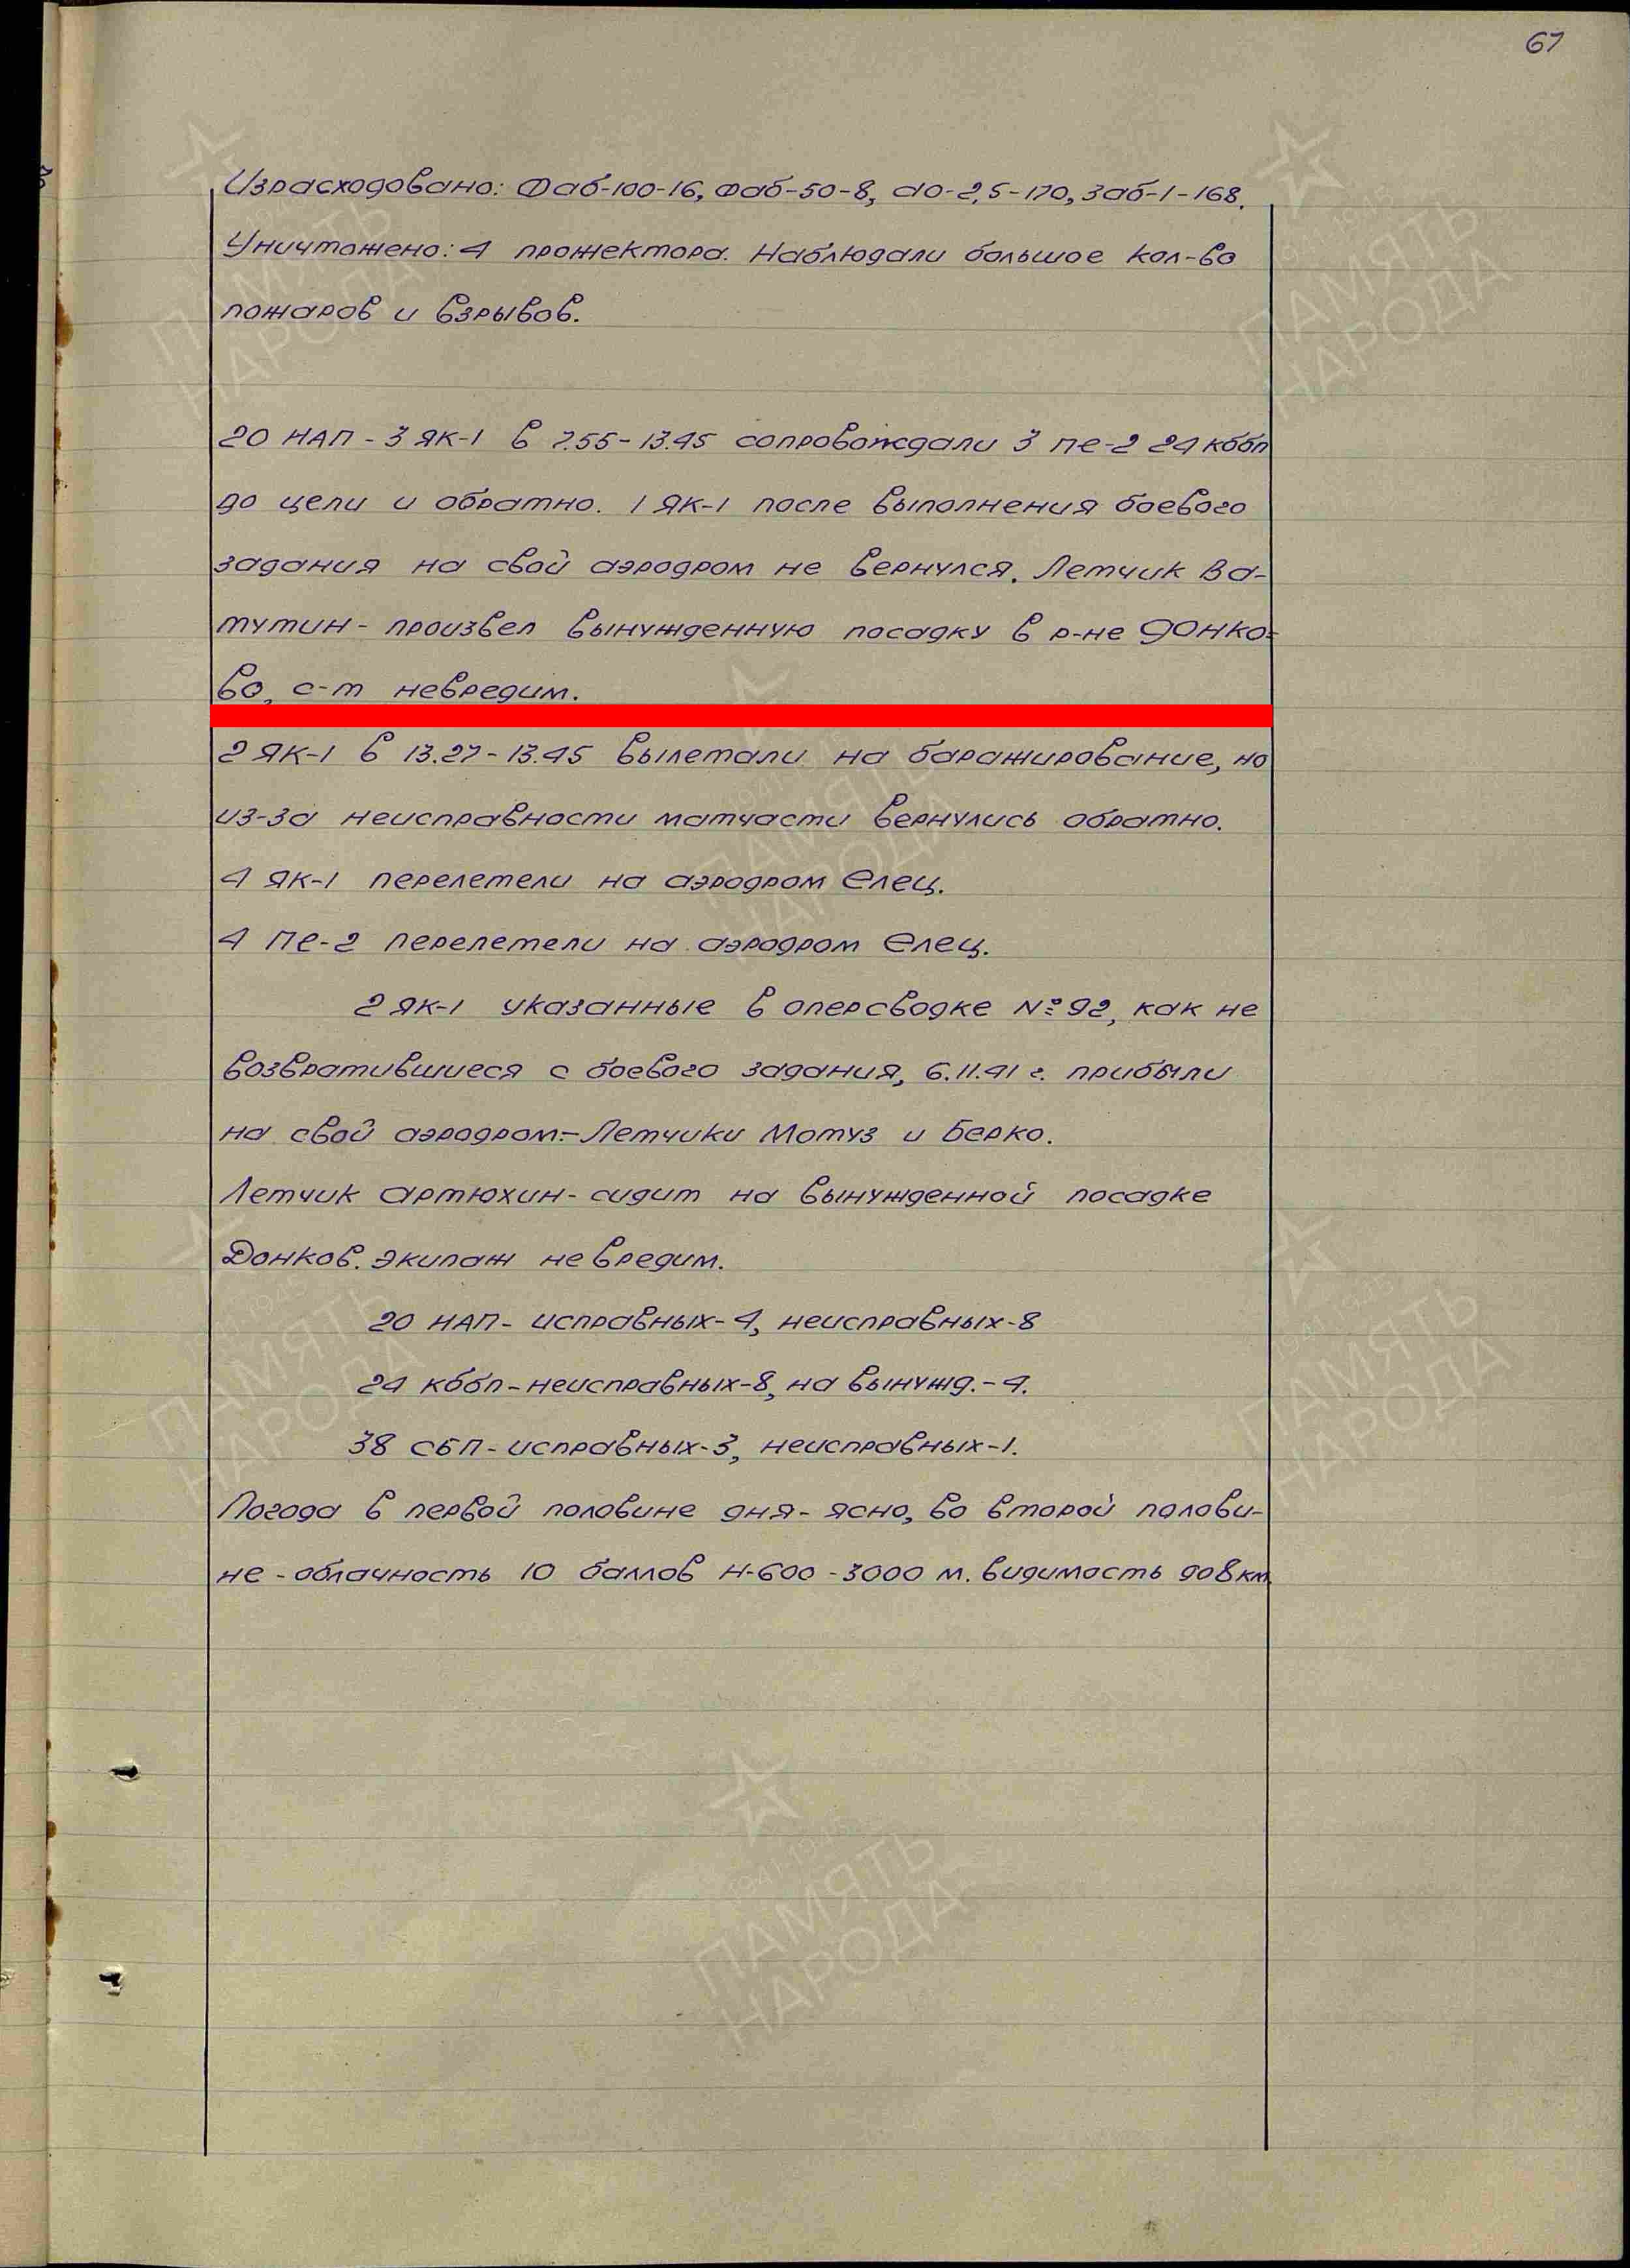 67
Израсходовано: Фаб-100-16, Фаб-50-8, АО-2,5-170, Заб-1-168.
Уничтожено: 4 прожектора. Наблюдали большое кол-во
пожаров и взрывов.
20 НАП - 3 ЯК-1 в 7.55-13.45 сопровождали 3 Пе-2 24 кббп
до цели и обратно. 1 ЯК-1 после выполнения боевого
задания на свой аэродром не вернулся. Летчик Ва-
тутин - произвел вынужденную посадку в р-не Донко=
во, с-т невредим.
2 ЯК-1 в 13.27-13.45 вылетали на баражирование, но
из-за неисправности матчасти вернулись обратно.
4 ЯК-1 перелетели на аэродром Елец.
4 Пе-2 перелетели на аэродром Елец.
2 ЯК-1 указанные в оперсводке №92, как не
возвратившиеся с боевого задания, 6.11.41 г. прибыли
на свой аэродром.-Летчики Мотуз и Берко.
Летчик Артюхин-сидит на вынужденной посадке
Донков. Экипаж не вредим.
20 НАП- исправных-4, неисправных-8
24 кббп-неисправных-8, на вынужд.-4.
38 СБП-исправных-3, неисправных-1.
Погода в первой половине дня-ясно, во второй полови-
не-облачность 10 баллов Н-600-3000 м. видимость до 8 км.
ПАМЯТЬ
НАРОДА
1941-1945